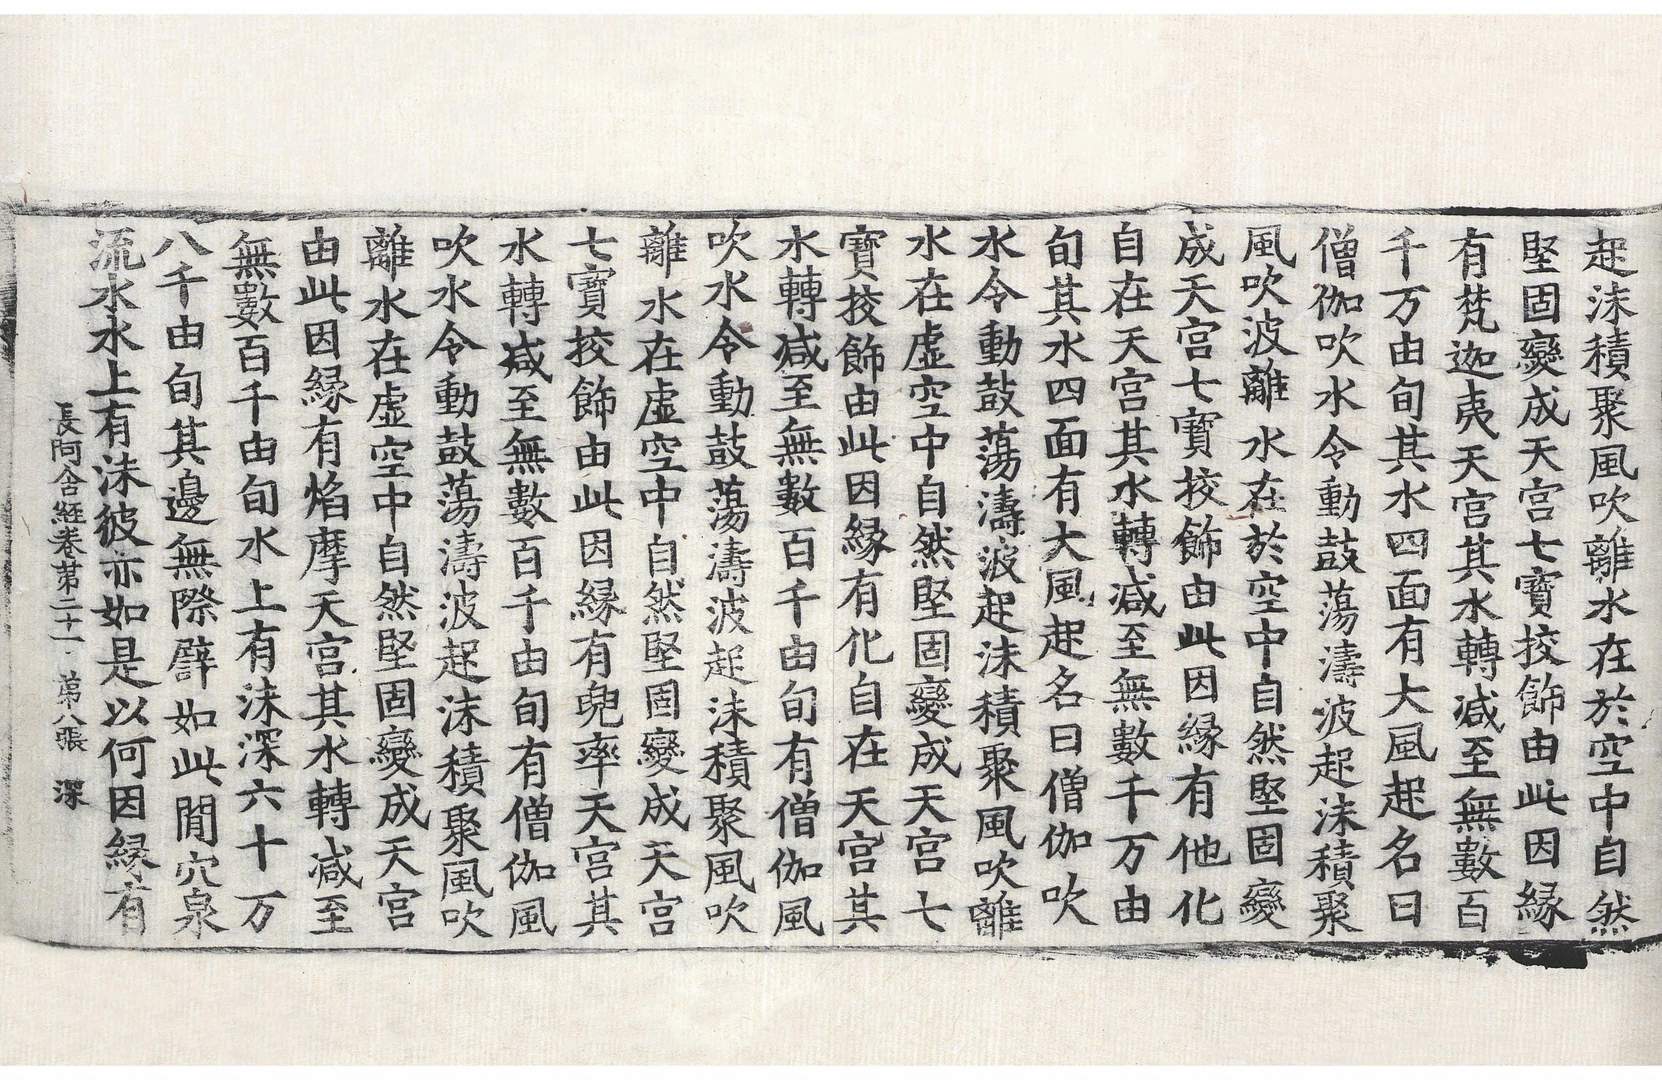 起沫積聚風吹離水在於空中自然
堅固變成天宮七寶挍飾由此因縁
有梵迦夷天宮其水轉减至無數百
千万由旬其水四面有大風起名曰
僧伽吹水令動鼓蕩濤波起沫積聚
風吹波離水在於空中自然堅固變
成天宮七寶挍飾由此因縁有他化
自在天宮其水轉减至無數千万由
旬其水四面有大風起名曰僧伽吹
水令動鼓蕩濤波起沫積聚風吹離
水在虛空中自然堅固變成天宮七
寶挍飾由此因縁有化自在天宮其
水轉减至無數百千由旬有僧伽風
吹水令動鼓蕩濤波起沫積聚風吹
離水在虛空中自然堅固變成天宮
七寶挍飾由此因縁有兜率天宮其
水轉减至無數百千由旬有僧伽風
吹水令動鼓蕩濤波起沫積聚風吹
離水在虛空中自然堅固變成天宮
由此因縁有焰摩天宮其水轉减至
無數百千由旬水上有沫深六十万
八千由旬其邊無際譬如此閒穴泉
流水水上有沫彼亦如是以何因縁有
長阿含經卷苐二十一 苐八張 深